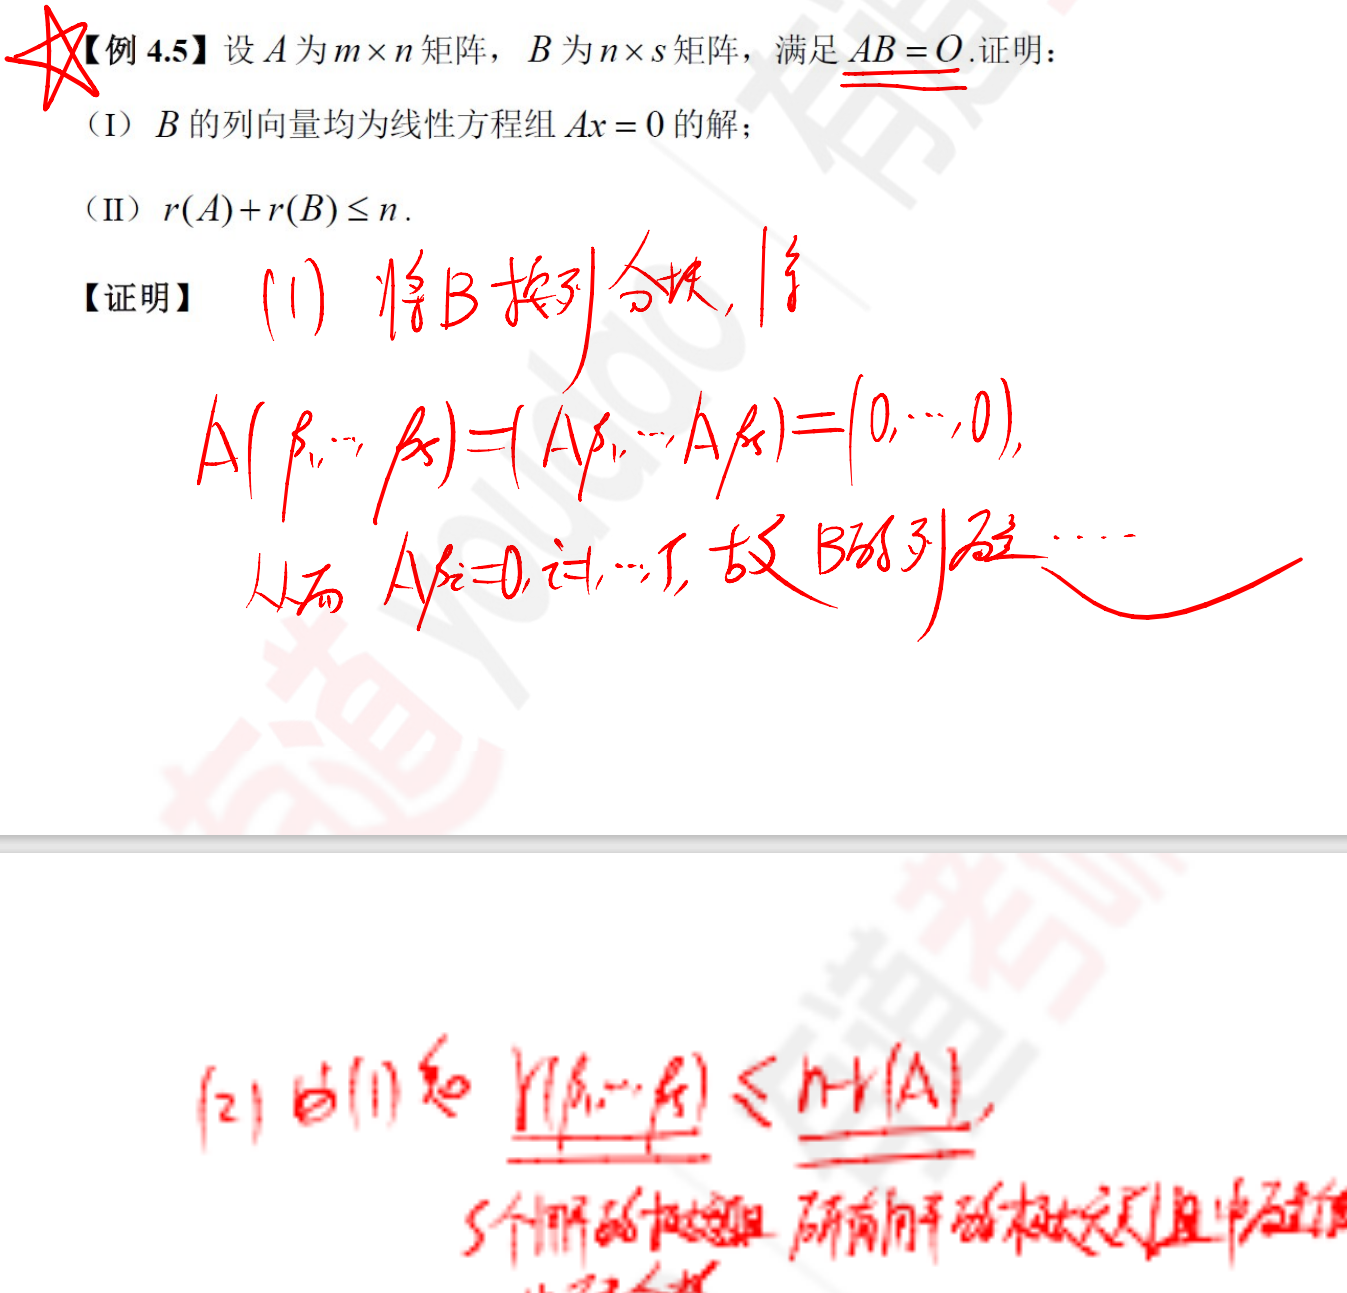 【例 4.5】设 A 为 m × n 矩阵， B 为 n × s 矩阵，满足 AB = O .证明：
（I） B 的列向量均为线性方程组 Ax = 0 的解；
（II） r(A) + r(B) ≤ n .
【证明】 (1) 将B按列分块,
A(β₁,…,βs)=(Aβ₁,…,Aβs)=(0,…,0),
从而 Aβi=0, i=1,…,s, 故B的列向量……
(2) 由(1)知 r(β₁,…,βs) ≤ n-r(A),
s个解的极大 所有解的极大无关组中向量个